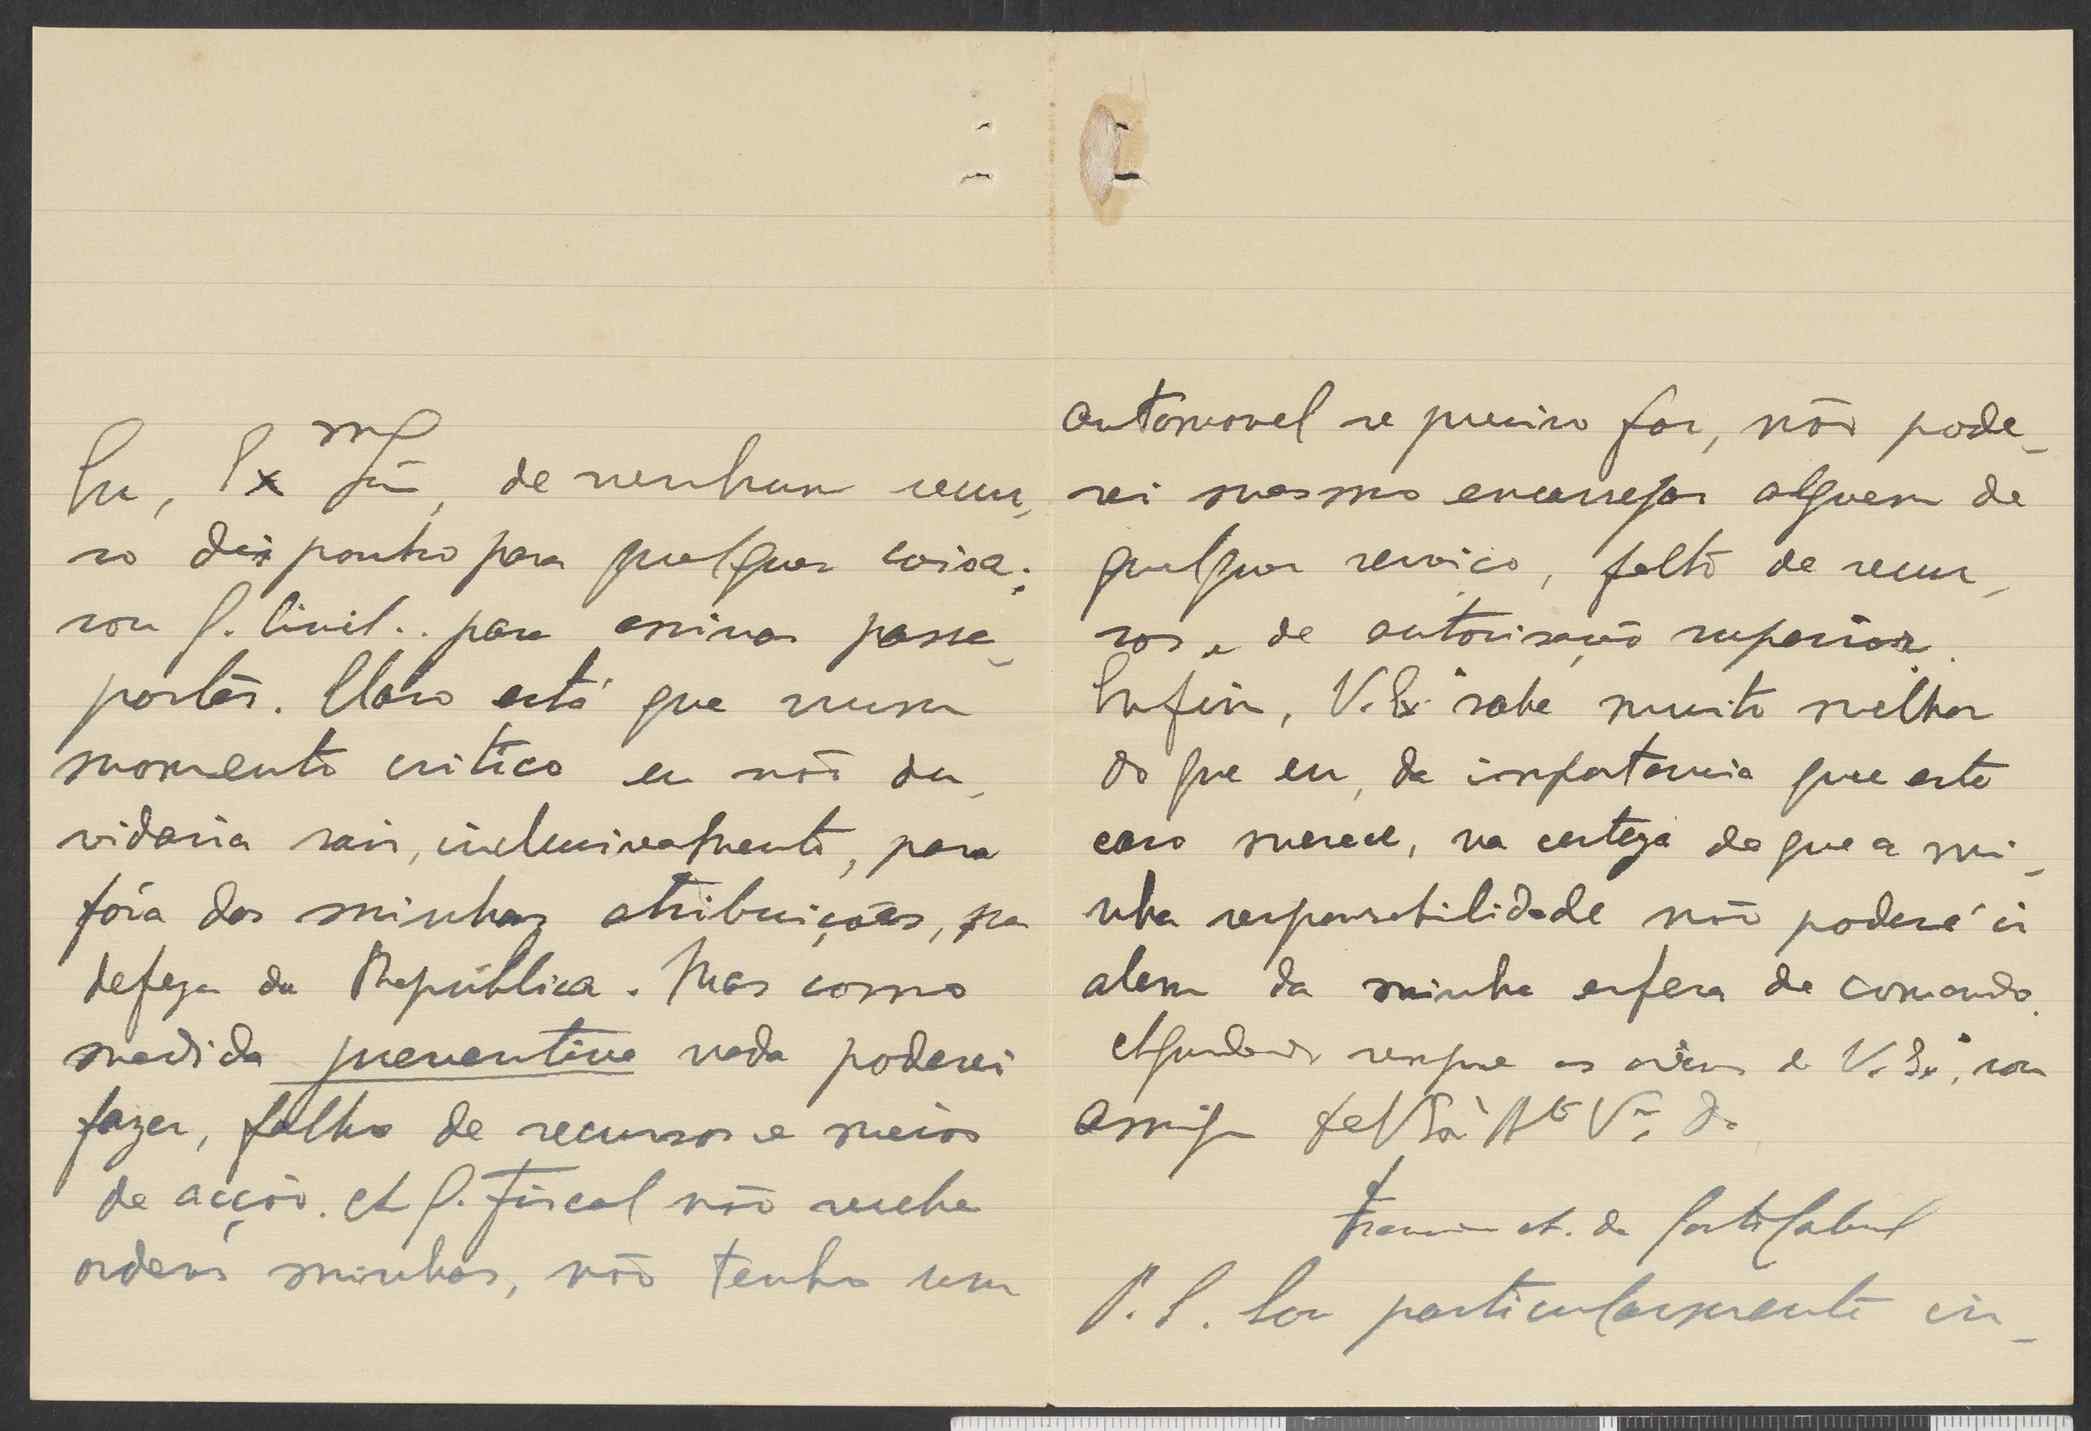 Eu, Exmo Snr, de nenhum recur-
so disponho para qualquer coisa:
sou G. Civil.. para assinar passa-
portes. Claro está que num
momento critico eu não du-
vidaria sair, inclusivamente, para
fóra das minhas atribuições, na
defeza da República. Mas como
medida preventiva nada poderei
fazer, falho de recursos e meios
de acção. A G. Fiscal não recebe
ordens minhas, não tenho um
automovel se preciso for, não pode-
rei mesmo encarregar alguem de
qualquer serviço, falto de recur-
sos e de autorisação superior.
Enfim, V. Exª sabe muito melhor
do que eu, da importancia que este
caso merece, na certeza de que a mi-
nha responsabilidade não poderá ir
alem da minha esfera de comando.
Aguardando sempre as ordens de V. Exª, sou
de V. Exª Atº Vor
Francisco A. da Costa Cabral
P.S. Sou particularmente in-